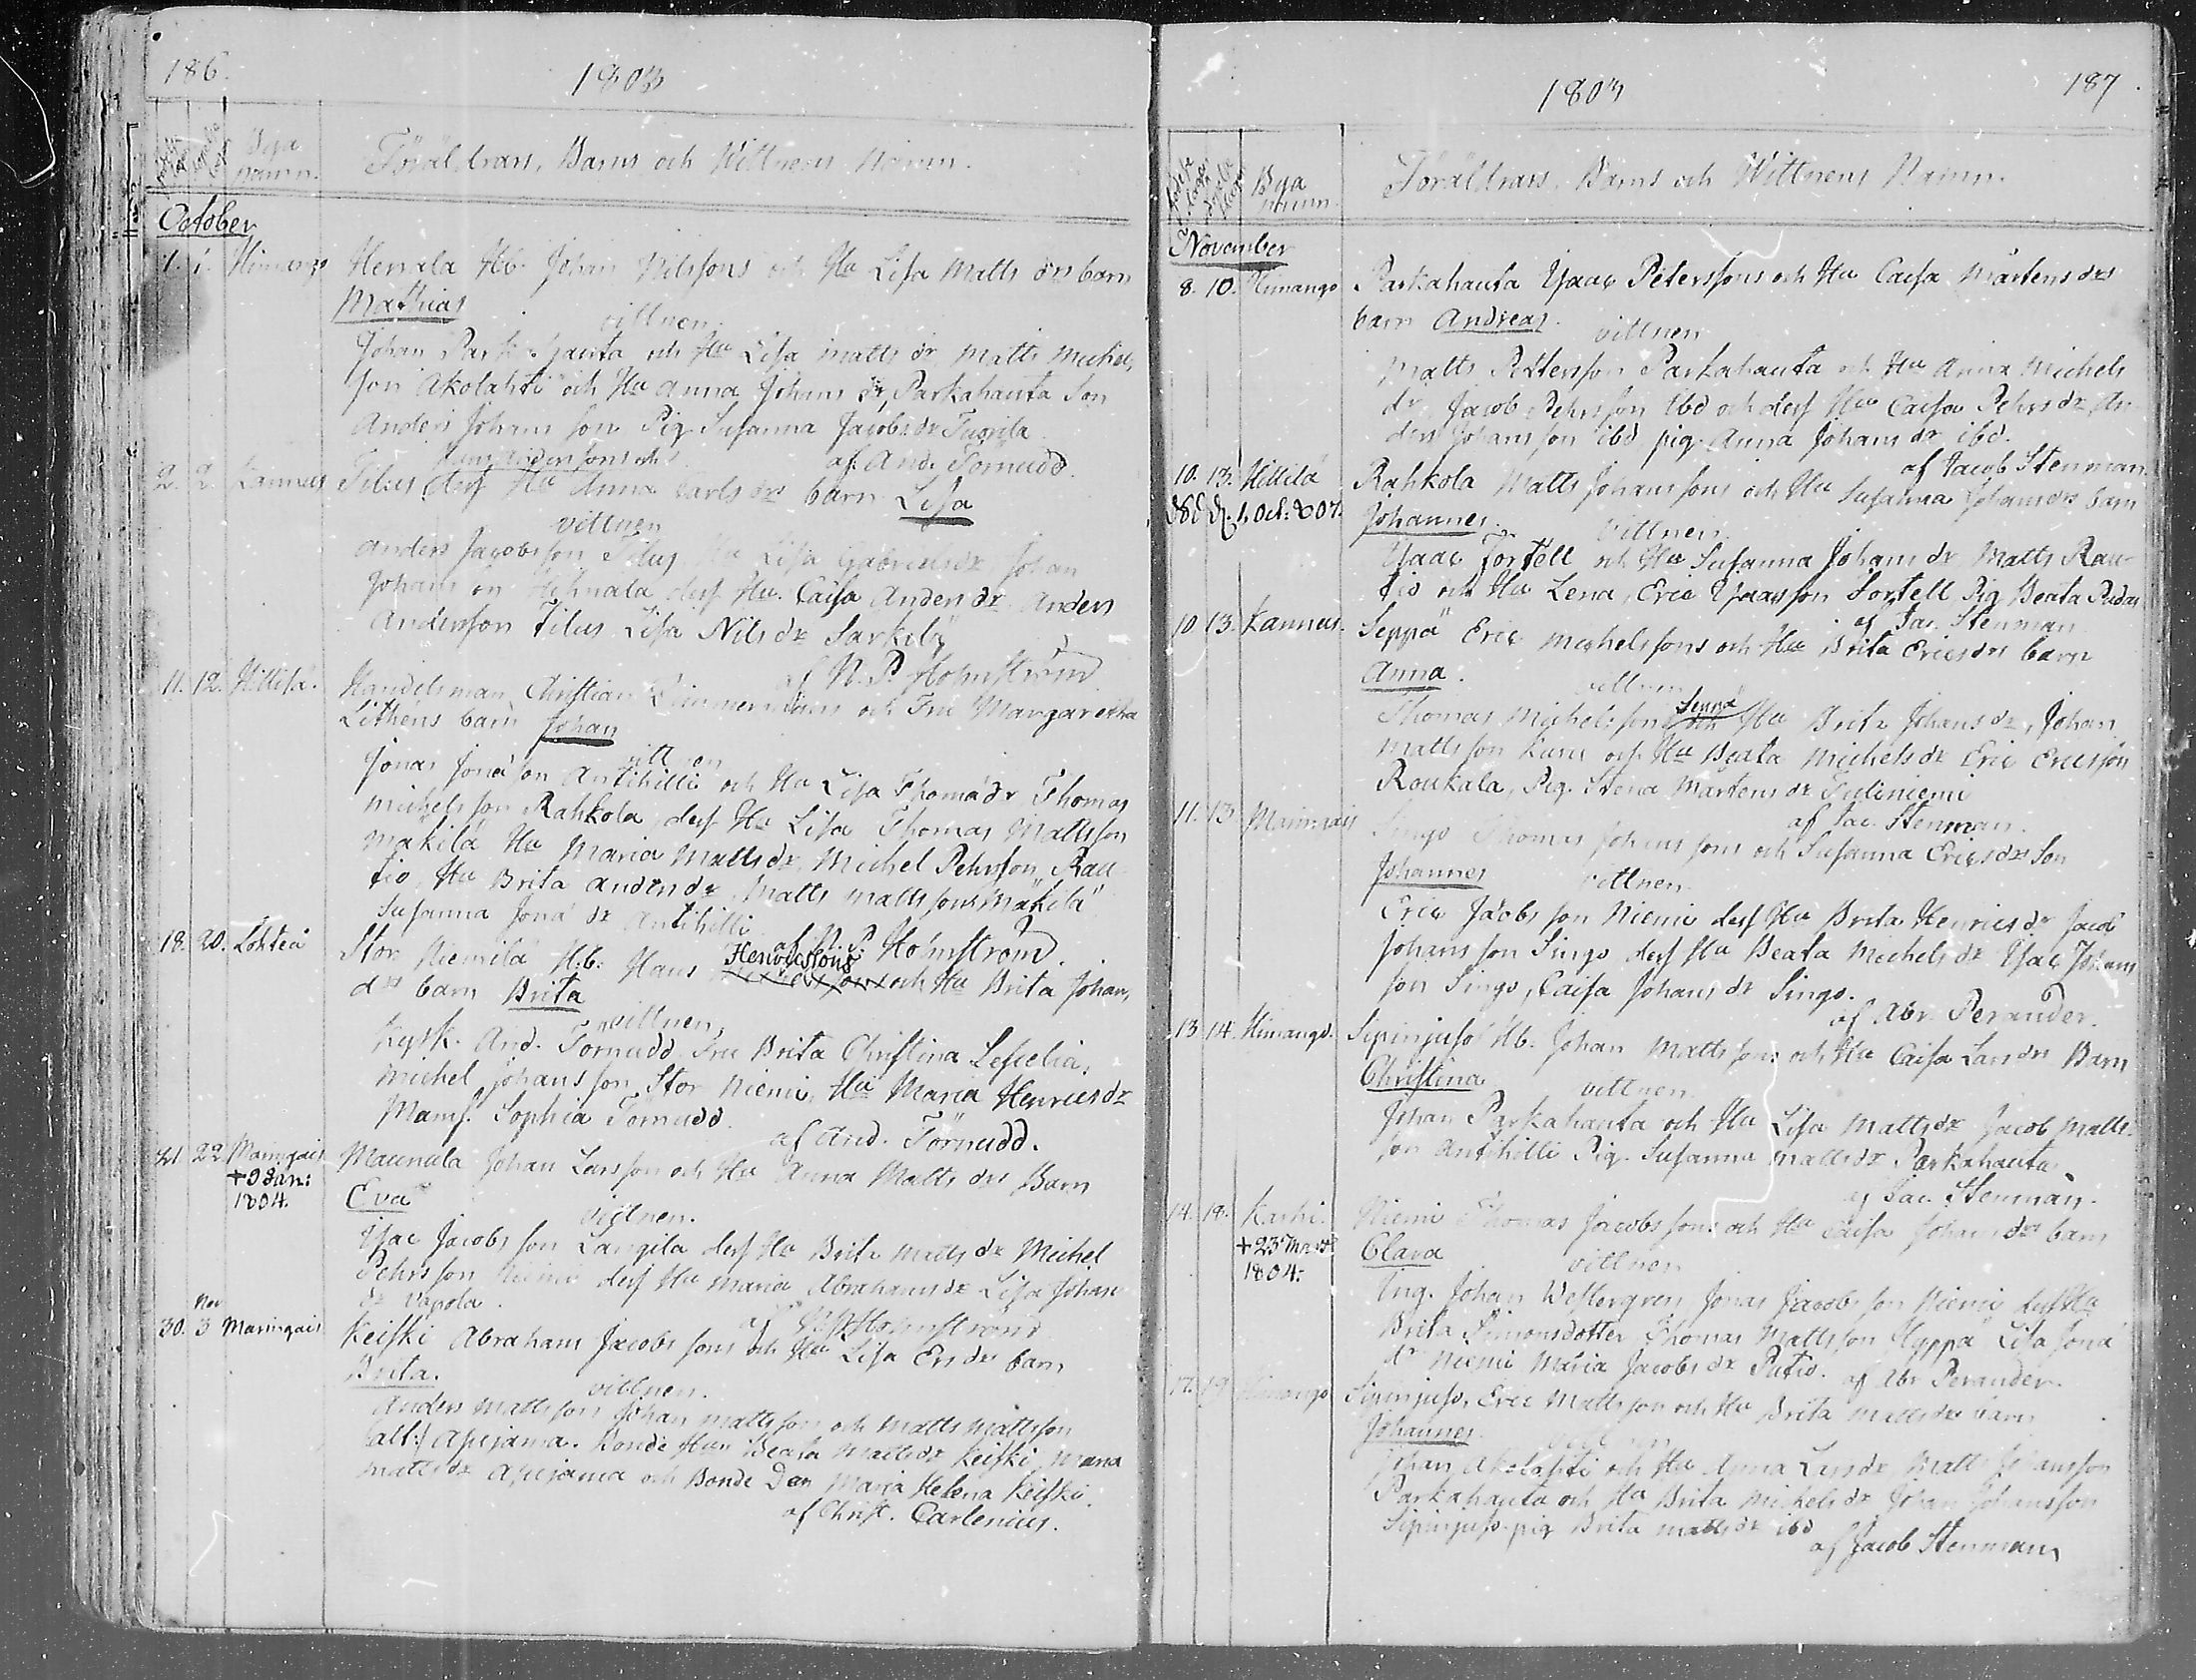 186.
1803
Bya
namn.
Föräldrars, Barns och Wittnens Namn.
October
1. 1. Himango Herrala Hb. Johan Nilssons och Hu Lisa Matts drs barn
Mathias
vittnen
Johan Parkahauta och Hu Lisa Matts dr Matts Michels
son Akolahti och Hu Anna Johans dr, Parkahauta Son
Anders Johans son Pig Susanna Jacobs dr Tuorila
af And. Törnudd
2. 2. Kannus Tilus dess Hu Anna Carls drs barn Lisa
vittnen
Anders Jacobsson Tilus Hu Lisa Gabriels dr Johan
Johans on dess Hu. Caisa Anders dr Anders
Andersson Tilus Lisa Nils dr Särkilä
af N. P. Holmström
11. 12. Hillilä. Handelsman Christian Zimmermans och Fru Margaretha
Lithéns barn Johan
vittnen
Jonas Jonasson Anttihilli och Hu Lisa Thomä dr Thomas
Michelsson Rahkola dess Hu Lisa Thomas Mattsson
Mäkilä Hu Maria Matts dr Michel Pehrsson Rau
tio Hu Brita Anders dr Matts Mattsons Mäkilä
Susanna Jona dr Anttihilli
af N. P. Holmström.
18. 20. Lohteå Stor Niemilä Hb: Hans Henricsons och Hu Brita Johans
drs barn Brita
vittnen,
Kyrk. And. Törnudd Fru Brita Christina Lescelia,
Michel Johansson Stor Niemi, Hu Maria Henrics dr
Mams. Sophia Törnudd.
af And. Törnudd.
21 22 Maringais Maunula Johan Larsson och Hu Anna Matts drs Barn
+9 Jan: 1804.
Eva
vittnen.
Isac Jacobsson Långila dess Hu Brita Matts dr Michel
Pehrsson Niemi dess Hu Maria Abrahams dr Lisa Johans
dr Vapola.
af N P Holmström
30. Nov 3 Maringais Keiski Abraham Jacobs sons och Hu Lisa Ers drs barn
Brita.
vittnen.
Anders Mattsson Johan Mattsson och Matts Mattsson
all: Apejama. Bonde Hun Beata Matts dr Keiski Maria
Matts dr Apejama och Bonde Dn Maria Helena Keiski.
af Christ. Carlenius.
1803
187.
Födelse dagar
Bya
namn.
Föräldrars, Barns och Wittnens Namn.
November
8. 10. Himango Parkahauta Isaac Peterssons och Hu Caisa Mårtens drs
barn Andreas.
vittnen
Matts Pettersson Parkahauta och Hu Anna Michels
dr, Jacob Pehrsson Ibd och dess Hu Caisa Pehrs dr An
ders Johansson ibd pig. Anna Johans dr ibd.
af Jacob Stenman
10. 13. Hillilä Rahkola Matts Johanssons och Hu Susanna Johans drs barn
död d. 1. Oct: 807.
Johannes.
vittnen.
Isaac Fortell och Hu Susanna Johans dr Matts Rau-
tio och Hu Lena, Eric Isaacsson Fortell Pig Beata Pudas
af Jac. Stenman
10 13. Kannus. Seppä Eric Michelssons och Hu Brita Erics drs barn
Anna.
vittnen
Thomas Michelsson och Hu Brita Johans dr, Johan
Mattsson Kuru och Hu Beata Michels dr Eric Ericsson
Roukala, Pig. Stena Mårtens dr Tuliniemi
af Jac. Stenman.
11. 13 Maringais Singo Thomas Johans sons och Susanna Erics drs Son
Johannes
vittnen
Eric Jacobsson Niemi dess Hu Brita Henrics dr Jacob
Johansson Singo dess Hu Beata Michels dr Isac Johans
son Singo, Caisa Johans dr Singo.
af Abr Perander.
13 14 Himango. Sipinjuso Hb. Johan Matts sons och Hu Caisa Lars drs Barn
Christina
vittnen
Johan Parkahauta och Hu Lisa Matts dr Jacob Matts
son Anttihilli Pig. Susanna Matts dr Parkahauta.
af Jac. Stenman.
14. 18. Karhi. Niemi Thomas Jacobs sons och Hu Caisa Johans drs barn
+23 Mart 1804:
Clara
vittnen
Ung. Johan Westergren Jonas Jacobsson Niemi dess Hu
Brita Simonsdotter Thomas Mattsson Hyppä Lisa Jona
dr Niemi Maria Jacobs dr Putio. af Abr Perander.
17. 19 Himango Sipinjuso, Eric Mattsson och Hu Brita Matts drs barn
Johannes
vittnen
Johan Akolahti och Hu Anna Lars dr Matts Johansson
Parkahauta och Hu Brita Michels dr Johan Johansson
Sipinjuso pig Brita Matts dr ibd
af Jacob Stenman